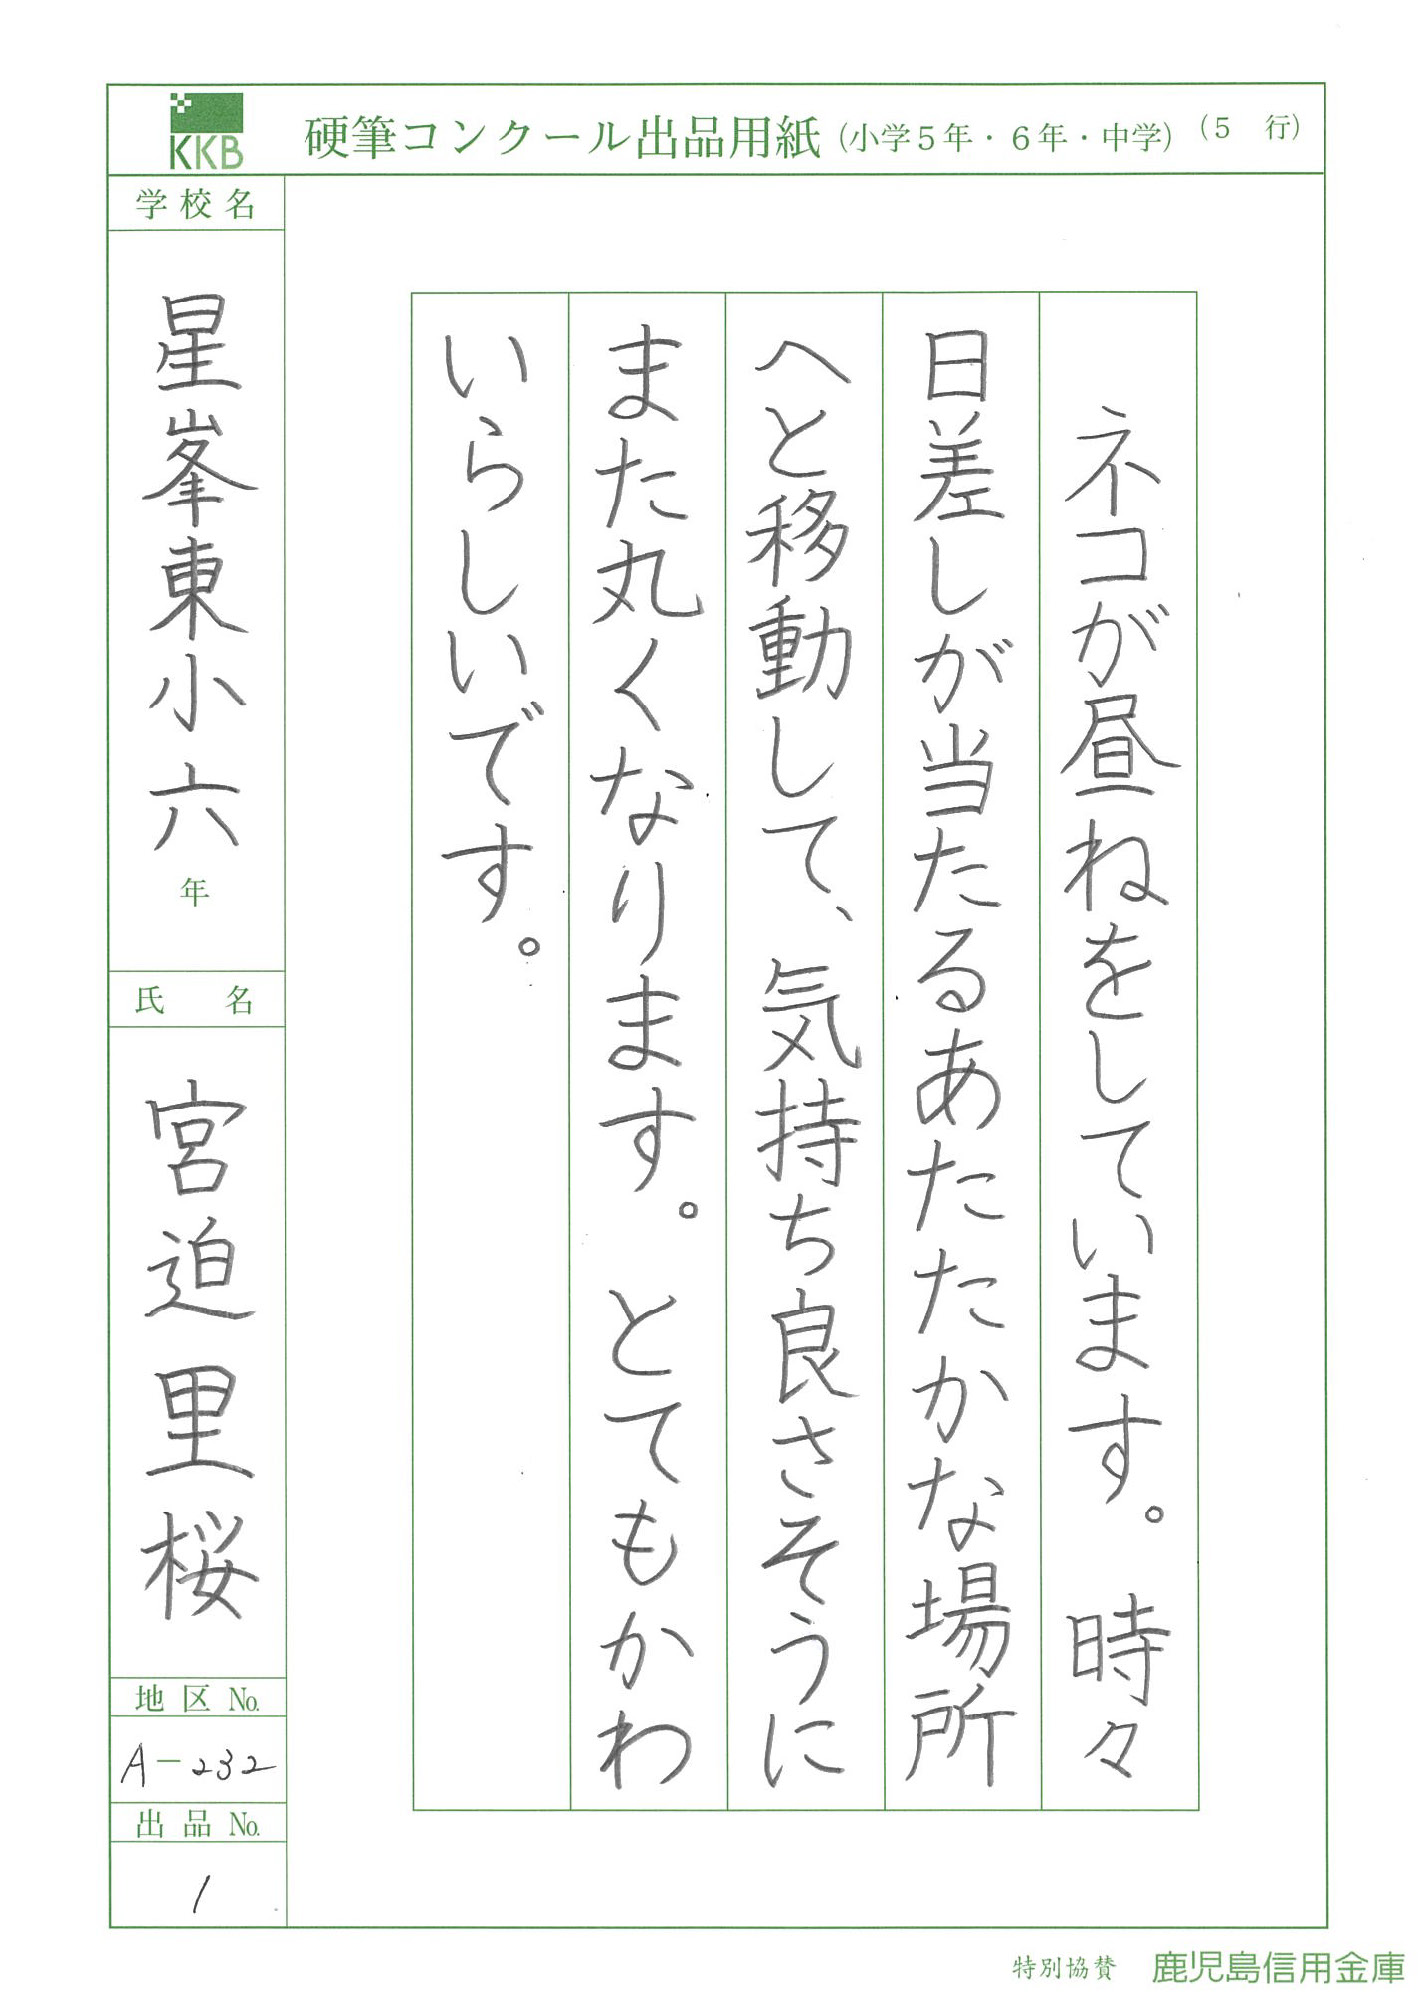 KKB
硬筆コンクール出品用紙(小学5年・6年・中学)(5 行)
ネコが昼ねをしています。時々
日差しが当たるあたたかな場所
へと移動して、気持ち良さそうに
また丸くなります。とてもかわ
いらしいです。
学校名
星峯東小六年
氏 名
宮迫里桜
地区No.
A-232
出品No.
1
特別協賛 鹿児島信用金庫